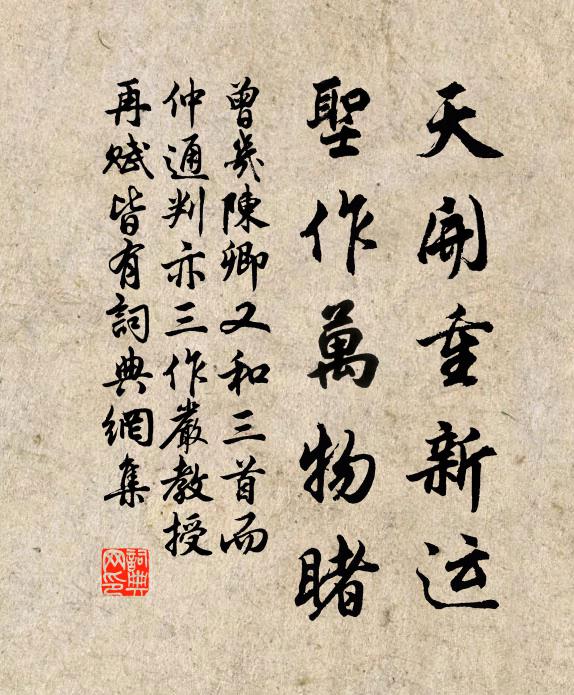 天開重新运
聖作萬物睹
曾幾陳卿又和三首而
仲通判亦三作嚴教授
再賦皆有詞典網集
詞典网印